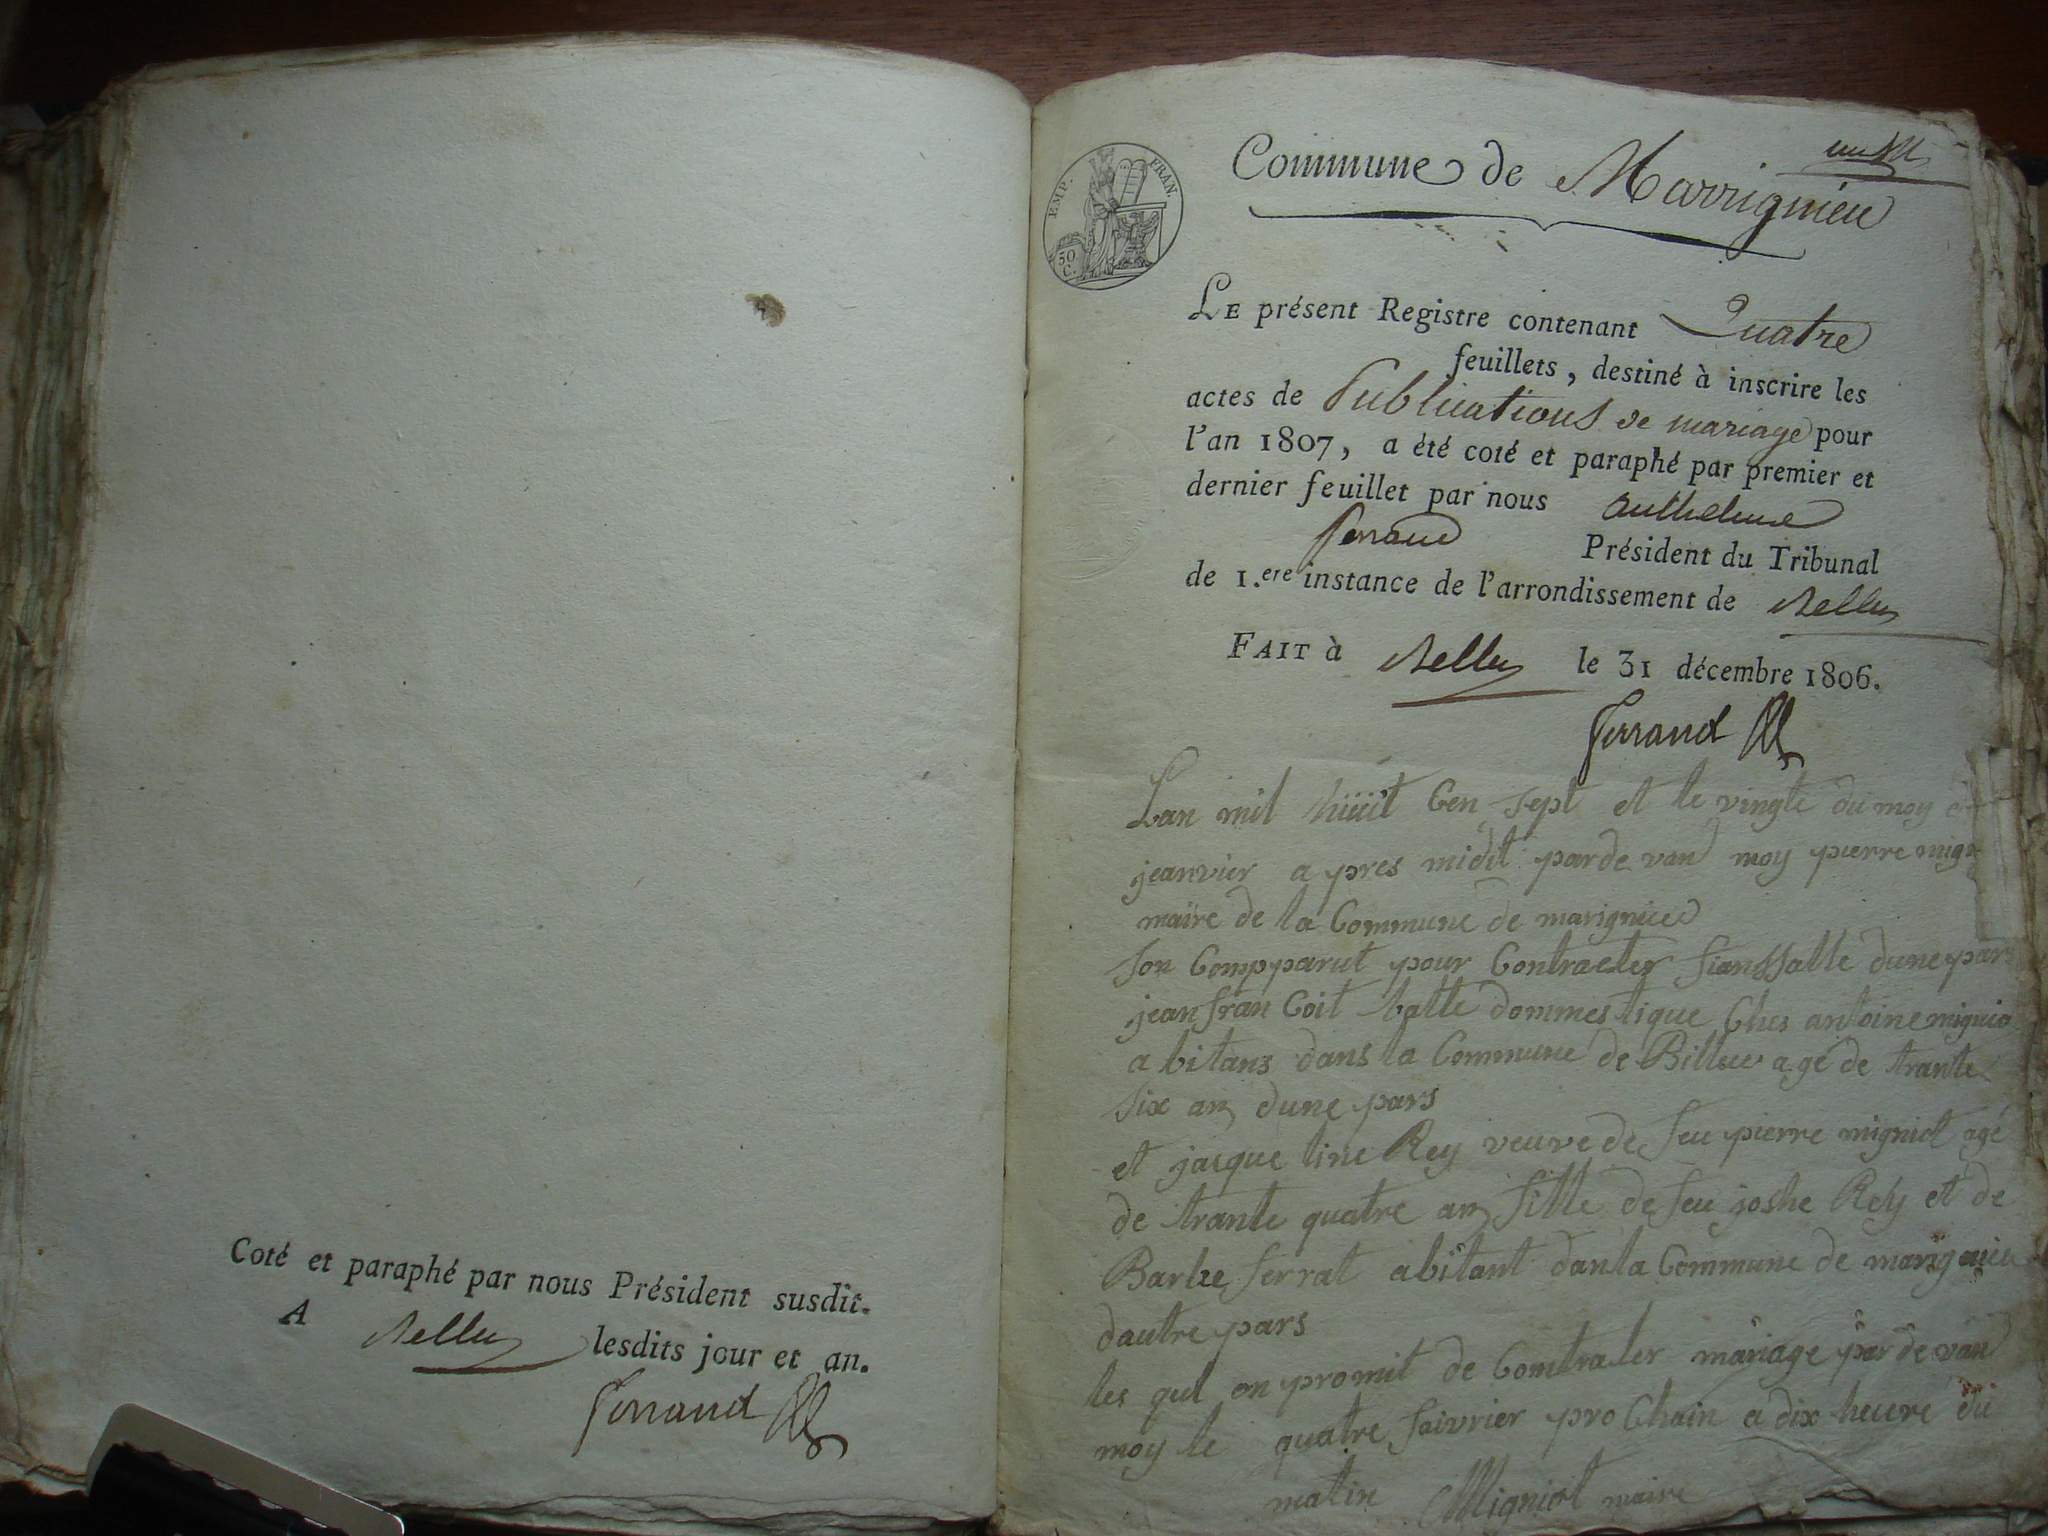 Coté et paraphé par nous Président susdit.
A Belley lesdits jour et an.
Ferrand
EMP. FRAN.
50 C.
Commune de Marrignieu
Le présent Registre contenant Quatre
feuillets, destiné à inscrire les
actes de Publications de mariage pour
l'an 1807, a été coté et paraphé par premier et
dernier feuillet par nous Anthelme
Ferrand Président du Tribunal
de 1.ere instance de l'arrondissement de Belley
Fait à Belley le 31 décembre 1806.
Ferrand
Lan mil hüüit Cen sept et le vingte du moy
jeanvier a pres midit parde van moy pierre
maire de la Commune de marignieu
son Compparut pour Contracter fianssalle dune pars
jean fran Coit balle dommestique Ches antoine
a bitans dans la Commune de Billieu age de trante
six an dune pars
et jacque line Rey veuve de feu pierre migniot agé
de trante quatre an fille de feu joshe Rey et de
Barbe ferrat abitant danla Commune de marignieu
dautre pars
les quel on promit de Comtrater mariage par de van
moy le quatre faivrier pro Chain a dix heure du
matin Migniot maire